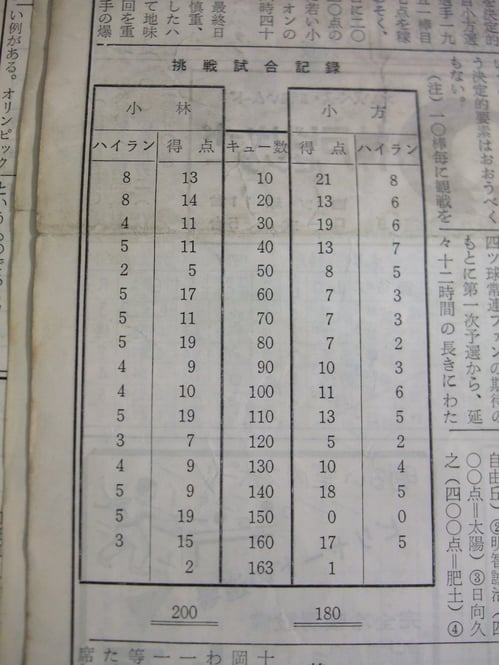 挑戦試合記録
小林 小方
ハイラン 得点 キュー数 得点 ハイラン
8 13 10 21 8
8 14 20 13 6
4 11 30 19 6
5 11 40 13 7
2 5 50 8 5
5 17 60 7 3
5 11 70 7 3
5 19 80 7 2
4 9 90 10 3
4 10 100 11 6
5 19 110 13 5
3 7 120 5 2
4 9 130 10 4
5 9 140 18 5
5 19 150 0 0
3 15 160 17 5
2 163 1
200 180
う決定的要素はおおうべく
もない。
(注)一〇棒毎に観戦を
四ツ球常連ファンの期待の
もとに第一次予選から、延
々十二時間の長きにわた
〇〇点=太陽)③日向久
之(四〇〇点=肥土)④
い例がある。オリンピック